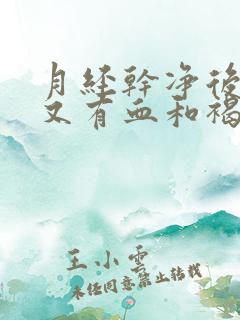 月经幹净後
又有血和褐
王小雲
未经同意禁止转载